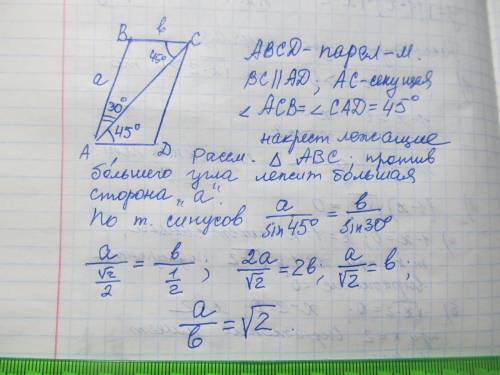 B в C
45°
a
30°
45°
A D
ABCD - парал-м.
BC∥AD; AC-секущая
∠ACB=∠CAD=45°
накрест лежащие
Рассм. △ ABC; против
большего угла лежит большая
сторона „a".
По т. синусов a/sin45° = в/sin30°
a/(√2/2) = в/(1/2); 2a/√2 = 2в; a/√2 = в;
a/в = √2.